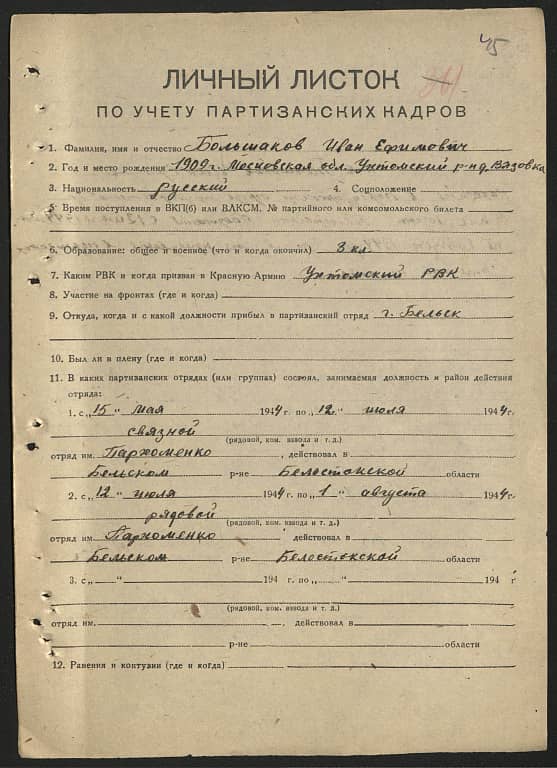 45
ЛИЧНЫЙ ЛИСТОК
ПО УЧЕТУ ПАРТИЗАНСКИХ КАДРОВ
1. Фамилия, имя и отчество Большаков Иван Ефимович
2. Год и место рождения 1909 г. Московская обл. Ухтомский р-н д. Вязовка
3. Национальность русский 4. Соцположение
5. Время поступления в ВКП(б) или ВЛКСМ, № партийного или комсомольского билета
6. Образование: общее и военное (что и когда окончил) 3 кл.
7. Каким РВК и когда призван в Красную Армию Ухтомский РВК
8. Участие на фронтах (где и когда)
9. Откуда, когда и с какой должности прибыл в партизанский отряд г. Бельск
10. Был ли в плену (где и когда)
11. В каких партизанских отрядах (или группах) состоял, занимаемая должность и район действия
отряда:
1. с „15" мая 1944 г. по „12" июля 1944 г.
связной
(рядовой, ком. взвода и т. д.)
отряд им. Пархоменко, действовал в
Бельском р-не Белостокской области
2. с „12" июля 1944 г. по „1" августа 1944 г.
рядовой
(рядовой, ком. взвода и т. д.)
отряд им. Пархоменко действовал в
Бельском р-не Белостокской области
3. с „ " 194 г. по „ " 194 г
(рядовой, ком. взвода и т. д.)
отряд им. , действовал в
р-не области
12. Ранения и контузии (где и когда)